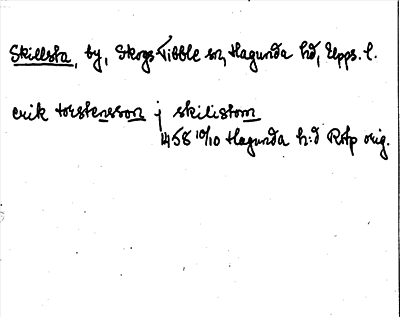 Skillsta, by, Skogs Tibble sn, Hagunda hd, Upps. l.
erik torstensson j skilistom
1458 10/10 Hagunda h:d RAp orig.